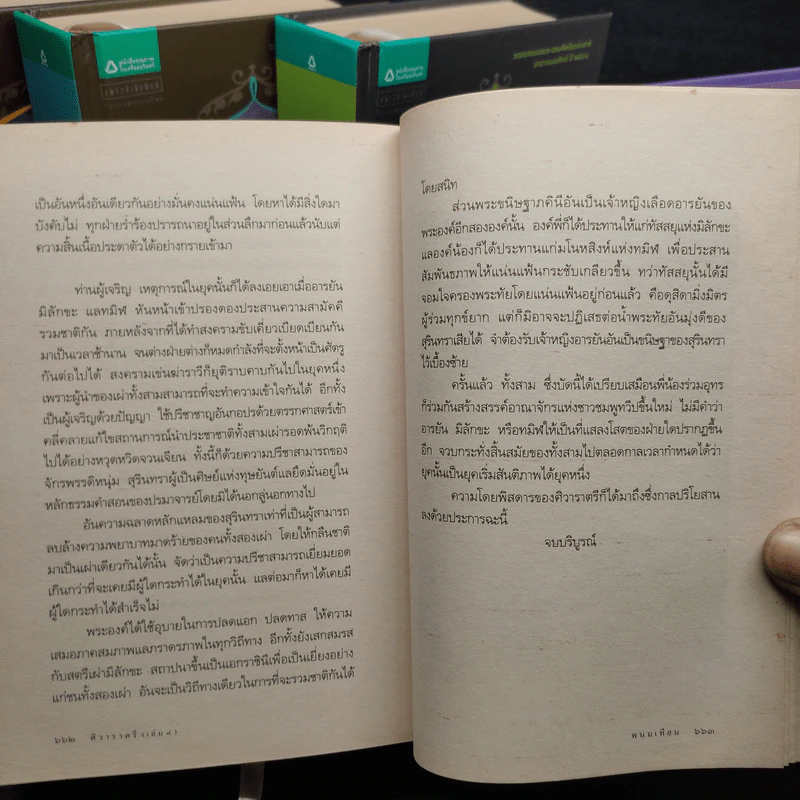 สำนักพิมพ์
ในเครืออมรินทร์
เป็นอันหนึ่งอันเดียวกันอย่างมั่นคงแน่นแฟ้น โดยหาได้มีสิ่งใดมา
บังคับไม่ ทุกฝ่ายร่ำร้องปรารถนาอยู่ในส่วนลึกมาก่อนแล้วนับแต่
ความสิ้นเนื้อประดาตัวได้อย่างกรายเข้ามา
ท่านผู้เจริญ เหตุการณ์ในยุคนั้นก็ได้ลงเอยเอาเมื่ออารยัน
มิลักขะ แลทมิฬ หันหน้าเข้าปรองดองประสานความสามัคคี
รวมชาติกัน ภายหลังจากที่ได้ทำสงครามขับเคี่ยวเบียดเบียนกัน
มาเป็นเวลาช้านาน จนต่างฝ่ายต่างก็หมดกำลังที่จะตั้งหน้าเป็นศัตรู
กันต่อไปได้ สงครามเช่นฆ่าราวีก็ยุติราบคาบกันไปในยุคหนึ่ง
เพราะผู้นำของเผ่าทั้งสามสามารถที่จะทำความเข้าใจกันได้ อีกทั้ง
เป็นผู้เจริญด้วยปัญญา ใช้ปรีชาชาญอันกอปรด้วยตรรกศาสตร์เข้า
คลี่คลายแก้ไขสถานการณ์นำประชาชาติทั้งสามเผ่ารอดพ้นวิกฤติ
ไปได้อย่างหวุดหวิดจวนเจียน ทั้งนี้ก็ด้วยความปรีชาสามารถของ
จักรพรรดิหนุ่ม สุรินทราผู้เป็นศิษย์แห่งทุษยันต์แลยึดมั่นอยู่ใน
หลักธรรมคำสอนของปรมาจารย์โดยมิได้นอกลู่นอกทางไป
อันความฉลาดหลักแหลมของสุรินทราเท่าที่เป็นผู้สามารถ
ลบล้างความพยาบาทมาดร้ายของคนทั้งสองเผ่า โดยให้กลืนชาติ
มาเป็นเผ่าเดียวกันได้นั้น จัดว่าเป็นความปรีชาสามารถเยี่ยมยอด
เกินกว่าที่จะเคยมีผู้ใดกระทำได้ในยุคนั้น แลต่อมาก็หาได้เคยมี
ผู้ใดกระทำได้สำเร็จไม่
พระองค์ได้ใช้อุบายในการปลดแอก ปลดทาส ให้ความ
เสมอภาคสมภาพแลภราดรภาพในทุกวิถีทาง อีกทั้งยังเสกสมรส
กับสตรีเผ่ามิลักขะ สถาปนาขึ้นเป็นเอกราชินีเพื่อเป็นเยี่ยงอย่าง
แก่ชนทั้งสองเผ่า อันจะเป็นวิถีทางเดียวในการที่จะรวมชาติกันได้
๖๖๒ ศิวาราตรี (เล่ม ๙)
โดยสนิท
ส่วนพระขนิษฐาภคินีอันเป็นเจ้าหญิงเลือดอารยันของ
พระองค์อีกสององค์นั้น องค์พี่ก็ได้ประทานให้แก่ทัสสยุแห่งมิลักขะ
แลองค์น้องก็ได้ประทานแก่มโนหสิงห์แห่งทมิฬ เพื่อประสาน
สัมพันธภาพให้แน่นแฟ้นกระชับเกลียวขึ้น ทว่าทัสสยุนั้นได้มี
จอมใจครองพระทัยโดยแน่นแฟ้นอยู่ก่อนแล้ว คือดุสิตามิ่งมิตร
ผู้ร่วมทุกข์ยาก แต่ก็มิอาจจะปฏิเสธต่อน้ำพระทัยอันมุ่งดีของ
สุรินทราเสียได้ จำต้องรับเจ้าหญิงอารยันอันเป็นขนิษฐาของสุรินทรา
ไว้เบื้องซ้าย
ครั้นแล้ว ทั้งสาม ซึ่งบัดนี้ได้เปรียบเสมือนพี่น้องร่วมอุทร
ก็ร่วมกันสร้างสรรค์อาณาจักรแห่งชาวชมพูทวีปขึ้นใหม่ ไม่มีคำว่า
อารยัน มิลักขะ หรือทมิฬให้เป็นที่แสลงโสตของฝ่ายใดปรากฏขึ้น
อีก จวบกระทั่งสิ้นสมัยของทั้งสามไปตลอดกาลเวลากำหนดได้ว่า
ยุคนั้นเป็นยุคเริ่มสันติภาพได้ยุคหนึ่ง
ความโดยพิสดารของศิวาราตรีก็ได้มาถึงซึ่งกาลปริโยสาน
ลงด้วยประการฉะนี้
จบบริบูรณ์
พนมเทียน ๖๖๓